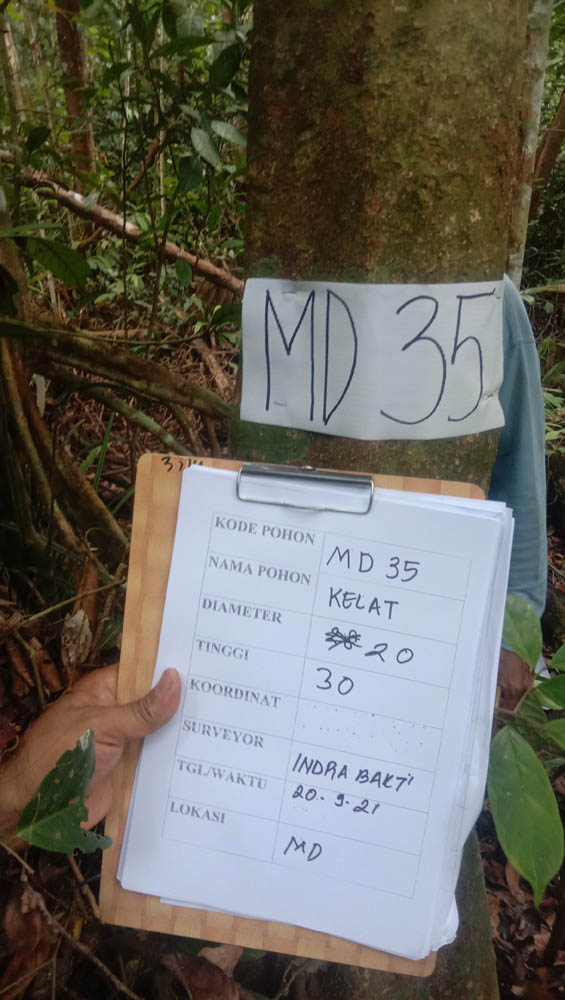 MD 35
KODE POHON MD 35
NAMA POHON KELAT
DIAMETER 20
TINGGI 30
KOORDINAT
SURVEYOR INDRA BAKTI
TGL/WAKTU 20.9.21
LOKASI MD